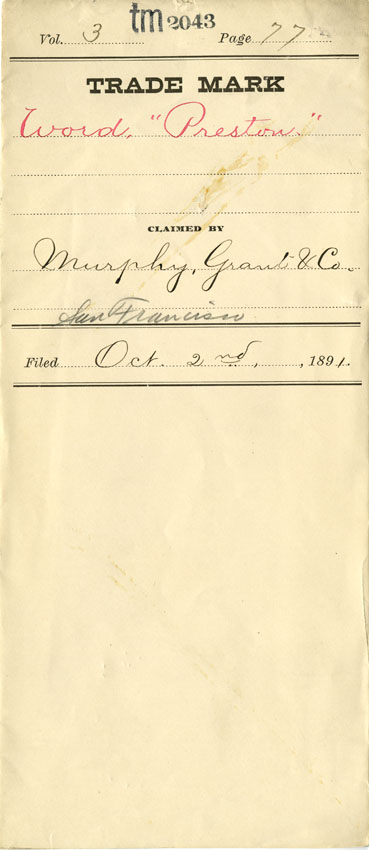 tm 2043
Vol. 3 Page 77
TRADE MARK
Word, "Preston."
CLAIMED BY
Murphy, Grant & Co.
San Francisco
Filed Oct. 2nd, , 1891.